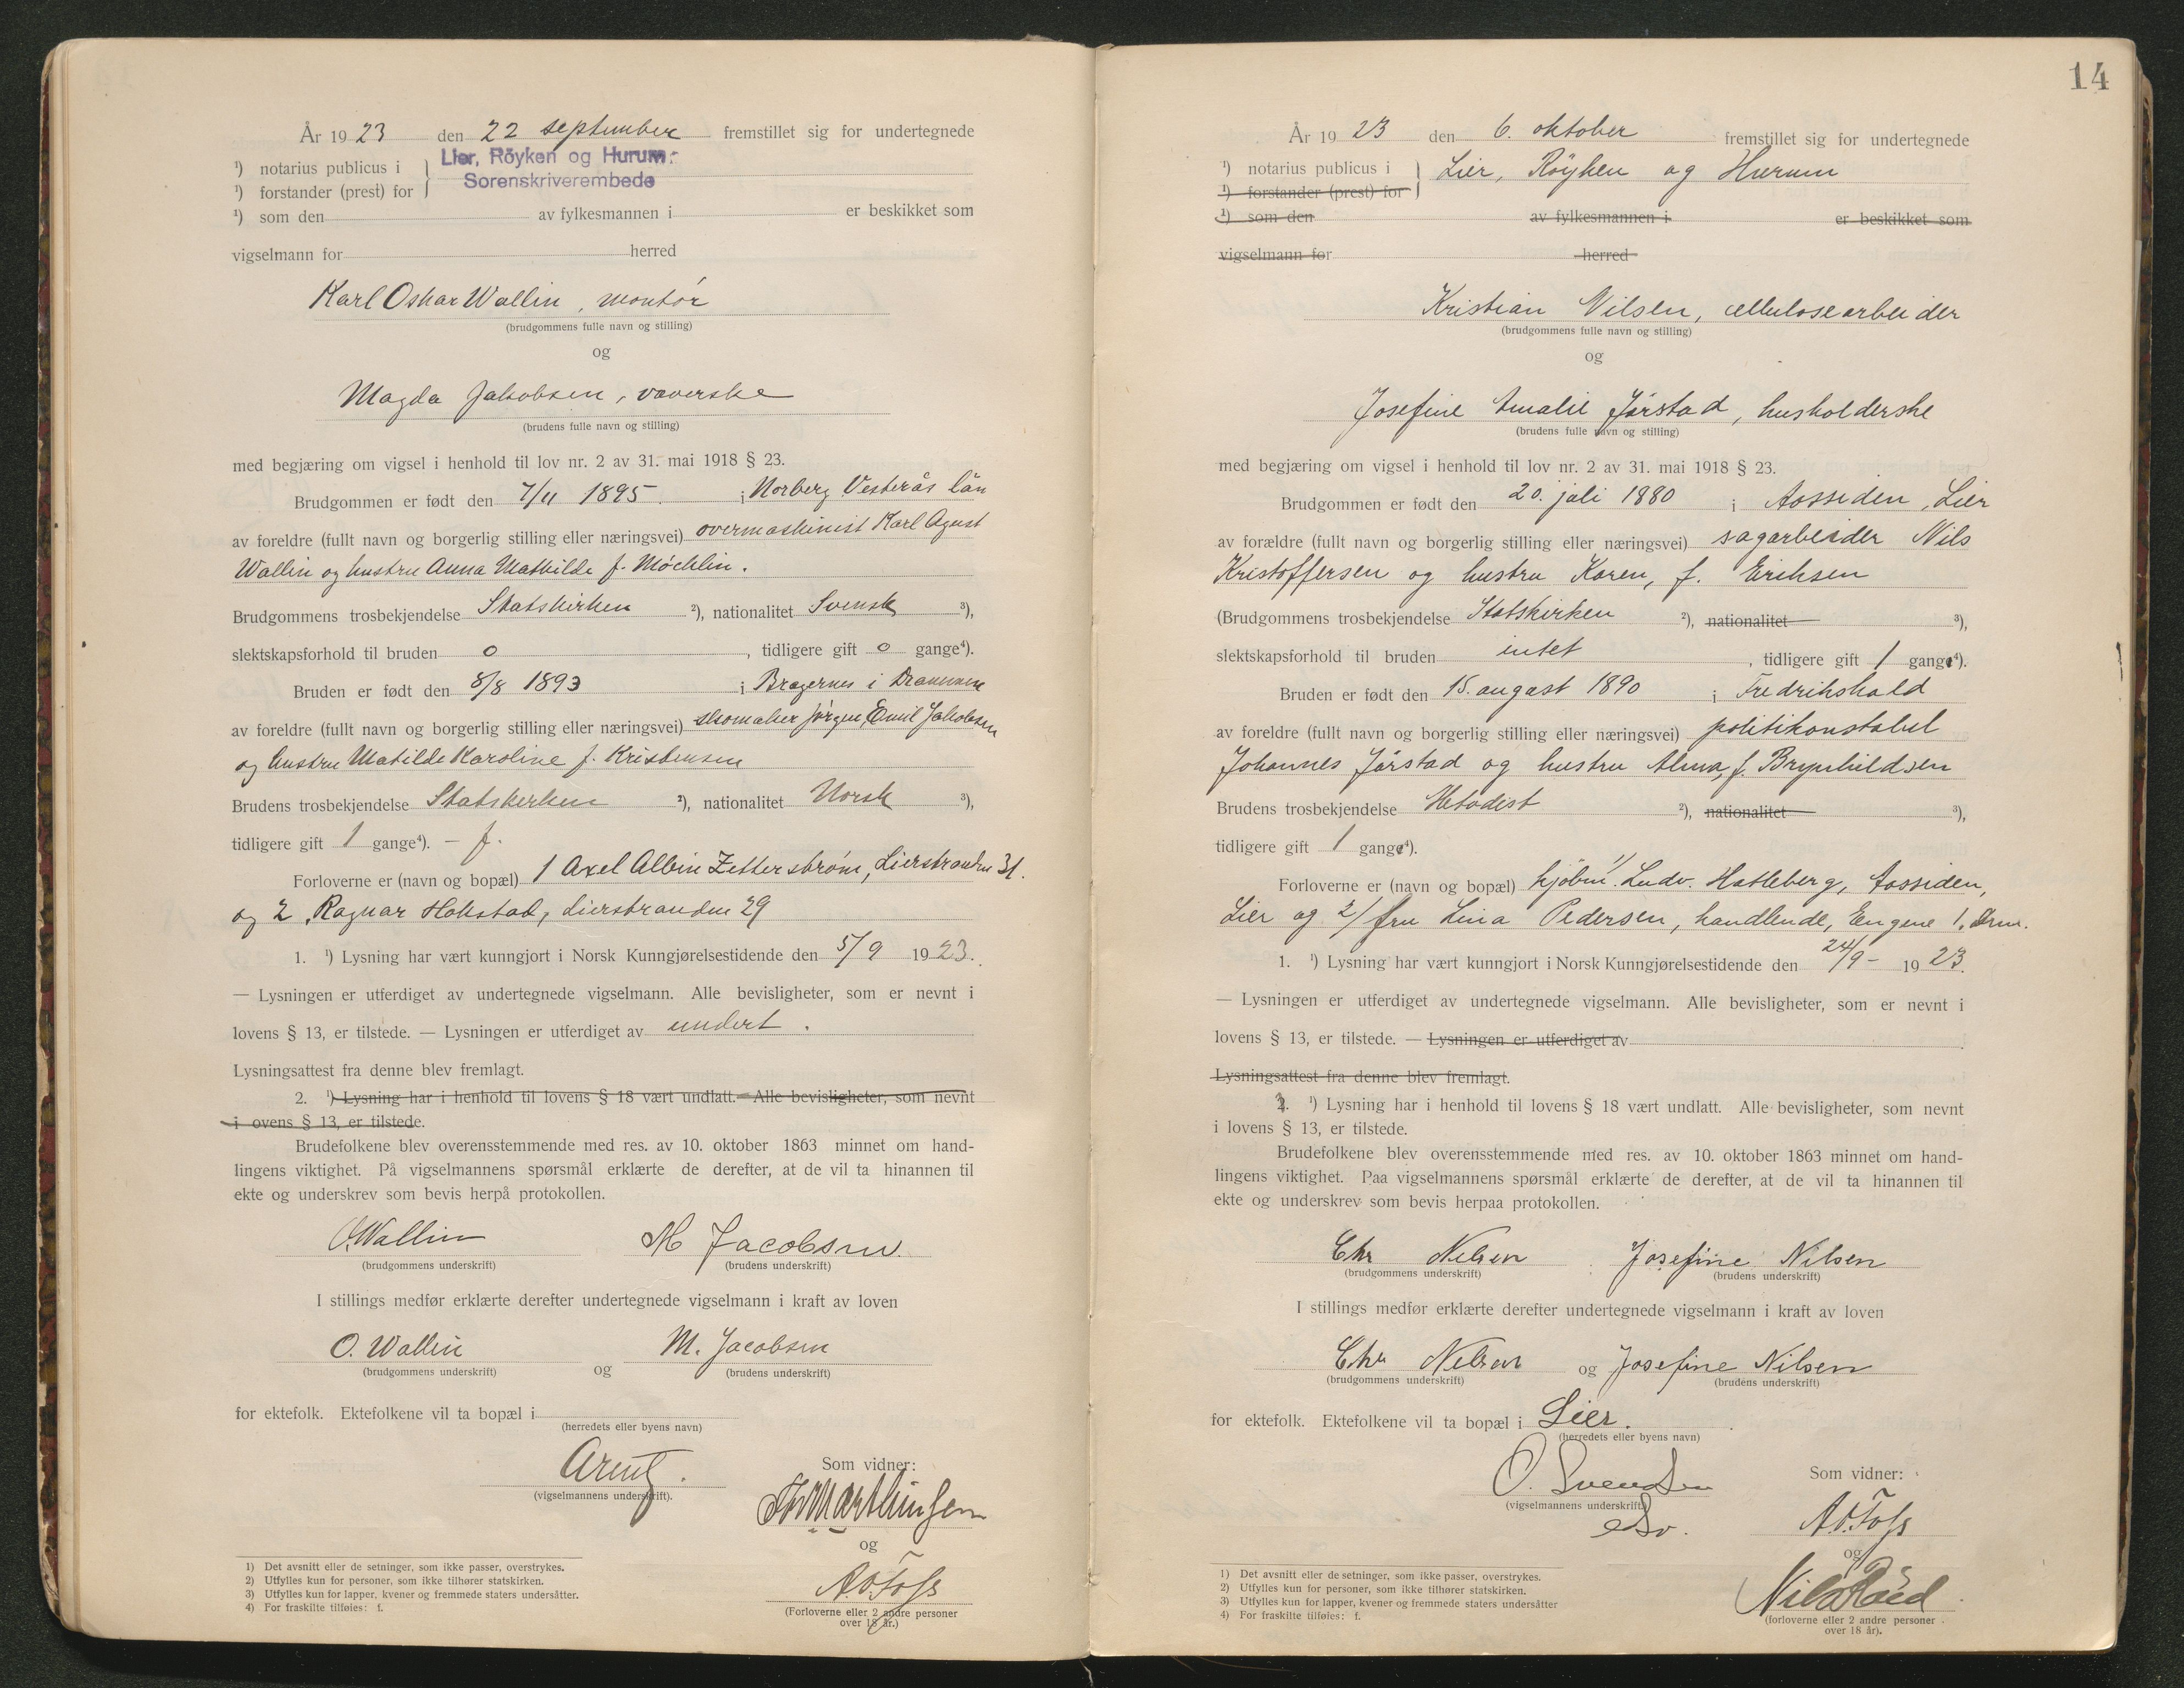 År 1923 den 22 september fremstillet sig for undertegnede
¹) notarius publicus i } Lier, Röyken og Hurum
¹) forstander (prest) for Sorenskriverembede
¹) som den av fylkesmannen i er beskikket som
vigselmann for herred
Karl Oskar Wallin, montör
(brudgommens fulle navn og stilling)
og
Magda Jakobsen, væverske
(brudens fulle navn og stilling)
med begjæring om vigsel i henhold til lov nr. 2 av 31. mai 1918 § 23.
Brudgommen er født den 7/11 1895. i Norberg Vesterås län
av foreldre (fullt navn og borgerlig stilling eller næringsvei) overmaskinist Karl Agust
Wallin og hustru Anna Mathilde f. Möchlin.
Brudgommens trosbekjendelse Statskirken ²), nationalitet Svensk ³),
slektskapsforhold til bruden 0, tidligere gift 0 gange⁴).
Bruden er født den 8/8 1893 i Bragernes i Drammen
av foreldre (fullt navn og borgerlig stilling eller næringsvei) skomaker Jörgen Emil Jakobsen
og hustru Matilde Karoline f. Kristensen
Brudens trosbekjendelse Statskirken ²), nationalitet Norsk ³),
tidligere gift 1 gange⁴). – f.
Forloverne er (navn og bopæl) 1 Axel Albin Zetterström, Lierstranden 31.
og 2. Ragnar Hokstad, Lierstranden 29
1. ¹) Lysning har vært kunngjort i Norsk Kunngjørelsestidende den 5/9 1923.
— Lysningen er utferdiget av undertegnede vigselmann. Alle bevisligheter, som er nevnt i
lovens § 13, er tilstede. — Lysningen er utferdiget av undert.
Lysningsattest fra denne blev fremlagt.
2. ¹) Lysning har i henhold til lovens § 18 vært undlatt. — Alle bevisligheter, som nevnt
i ovens § 13, er tilstede.
Brudefolkene blev overensstemmende med res. av 10. oktober 1863 minnet om hand-
lingens viktighet. På vigselmannens spørsmål erklærte de derefter, at de vil ta hinannen til
ekte og underskrev som bevis herpå protokollen.
O. Wallin M Jacobsen
(brudgommens underskrift) (brudens underskrift)
I stillings medfør erklærte derefter undertegnede vigselmann i kraft av loven
O. Wallin og M. Jacobsen
(brudgommens underskrift) (brudens underskrift)
for ektefolk. Ektefolkene vil ta bopæl i
(herredets eller byens navn)
Arentz. Som vidner:
(vigselmannens underskrift).
og
A.O. Foss
(Forloverne eller 2 andre personer
over 18 år.)
1) Det avsnitt eller de setninger, som ikke passer, overstrykes.
2) Utfylles kun for personer, som ikke tilhører statskirken.
3) Utfylles kun for lapper, kvener og fremmede staters undersåtter.
4) For fraskilte tilføies: f.
14
År 1923 den 6. oktober fremstillet sig for undertegnede
¹) notarius publicus i } Lier, Röyken og Hurum
¹) forstander (prest) for
¹) som den av fylkesmannen i er beskikket som
vigselmann for herred
Kristian Nilsen, cellulosearbeider
(brudgommens fulle navn og stilling)
og
Josefine Amalie Jörstad, husholderske
(brudens fulle navn og stilling)
med begjæring om vigsel i henhold til lov nr. 2 av 31. mai 1918 § 23.
Brudgommen er født den 20. juli 1880 i Aossiden, Lier
av forældre (fullt navn og borgerlig stilling eller næringsvei) sagarbeider Nils
Kristoffersen og hustru Karen, f. Eriksen
(Brudgommens trosbekjendelse Statskirken ²), nationalitet ³),
slektskapsforhold til bruden intet, tidligere gift 1 gange⁴).
Bruden er født den 15. august 1890 i Fredrikshald
av foreldre (fullt navn og borgerlig stilling eller næringsvei) politikonstabel
Johannes Jörstad og hustru Alma, f. Brynhildsen
Brudens trosbekjendelse Metodist ²), nationalitet ³),
tidligere gift 1 gange⁴).
Forloverne er (navn og bopæl) 1/ kjöbm. Ludv. Hatleberg, Aossiden,
Lier og 2/ fru Lina Pedersen, handlende, Engene 1, Drm.
1. ¹) Lysning har vært kunngjort i Norsk Kunngjørelsestidende den 24/9- 1923.
— Lysningen er utferdiget av undertegnede vigselmann. Alle bevisligheter, som er nevnt i
lovens § 13, er tilstede. — Lysningen er utferdiget av
Lysningsattest fra denne blev fremlagt.
2. ¹) Lysning har i henhold til lovens § 18 vært undlatt. Alle bevisligheter, som nevnt
i lovens § 13, er tilstede.
Brudefolkene blev overensstemmende med res. av 10. oktober 1863 minnet om hand-
lingens viktighet. Paa vigselmannens spørsmål erklærte de derefter, at de vil ta hinannen til
ekte og underskrev som bevis herpaa protokollen.
Chr Nilsen Josefine Nilsen
(brudgommens underskrift) (brudens underskrift)
I stillings medfør erklærte derefter undertegnede vigselmann i kraft av loven
Chr Nilsen og Josefine Nilsen
(brudgommens underskrift) (brudens underskrift)
for ektefolk. Ektefolkene vil ta bopæl i Lier.
(herredets eller byens navn)
O. Svendsen Som vidner:
(vigselmannens underskrift)
A.O. Foss
og
(forloverne eller 2 andre personer
over 18 år).
1) Det avsnitt eller de setninger, som ikke passer, overstrykes.
2) Utfylles kun for personer, som ikke tilhører statskirken.
3) Utfylles kun for lapper, kvener og fremmede staters undersåtter
4) For fraskilte tilføies: f.